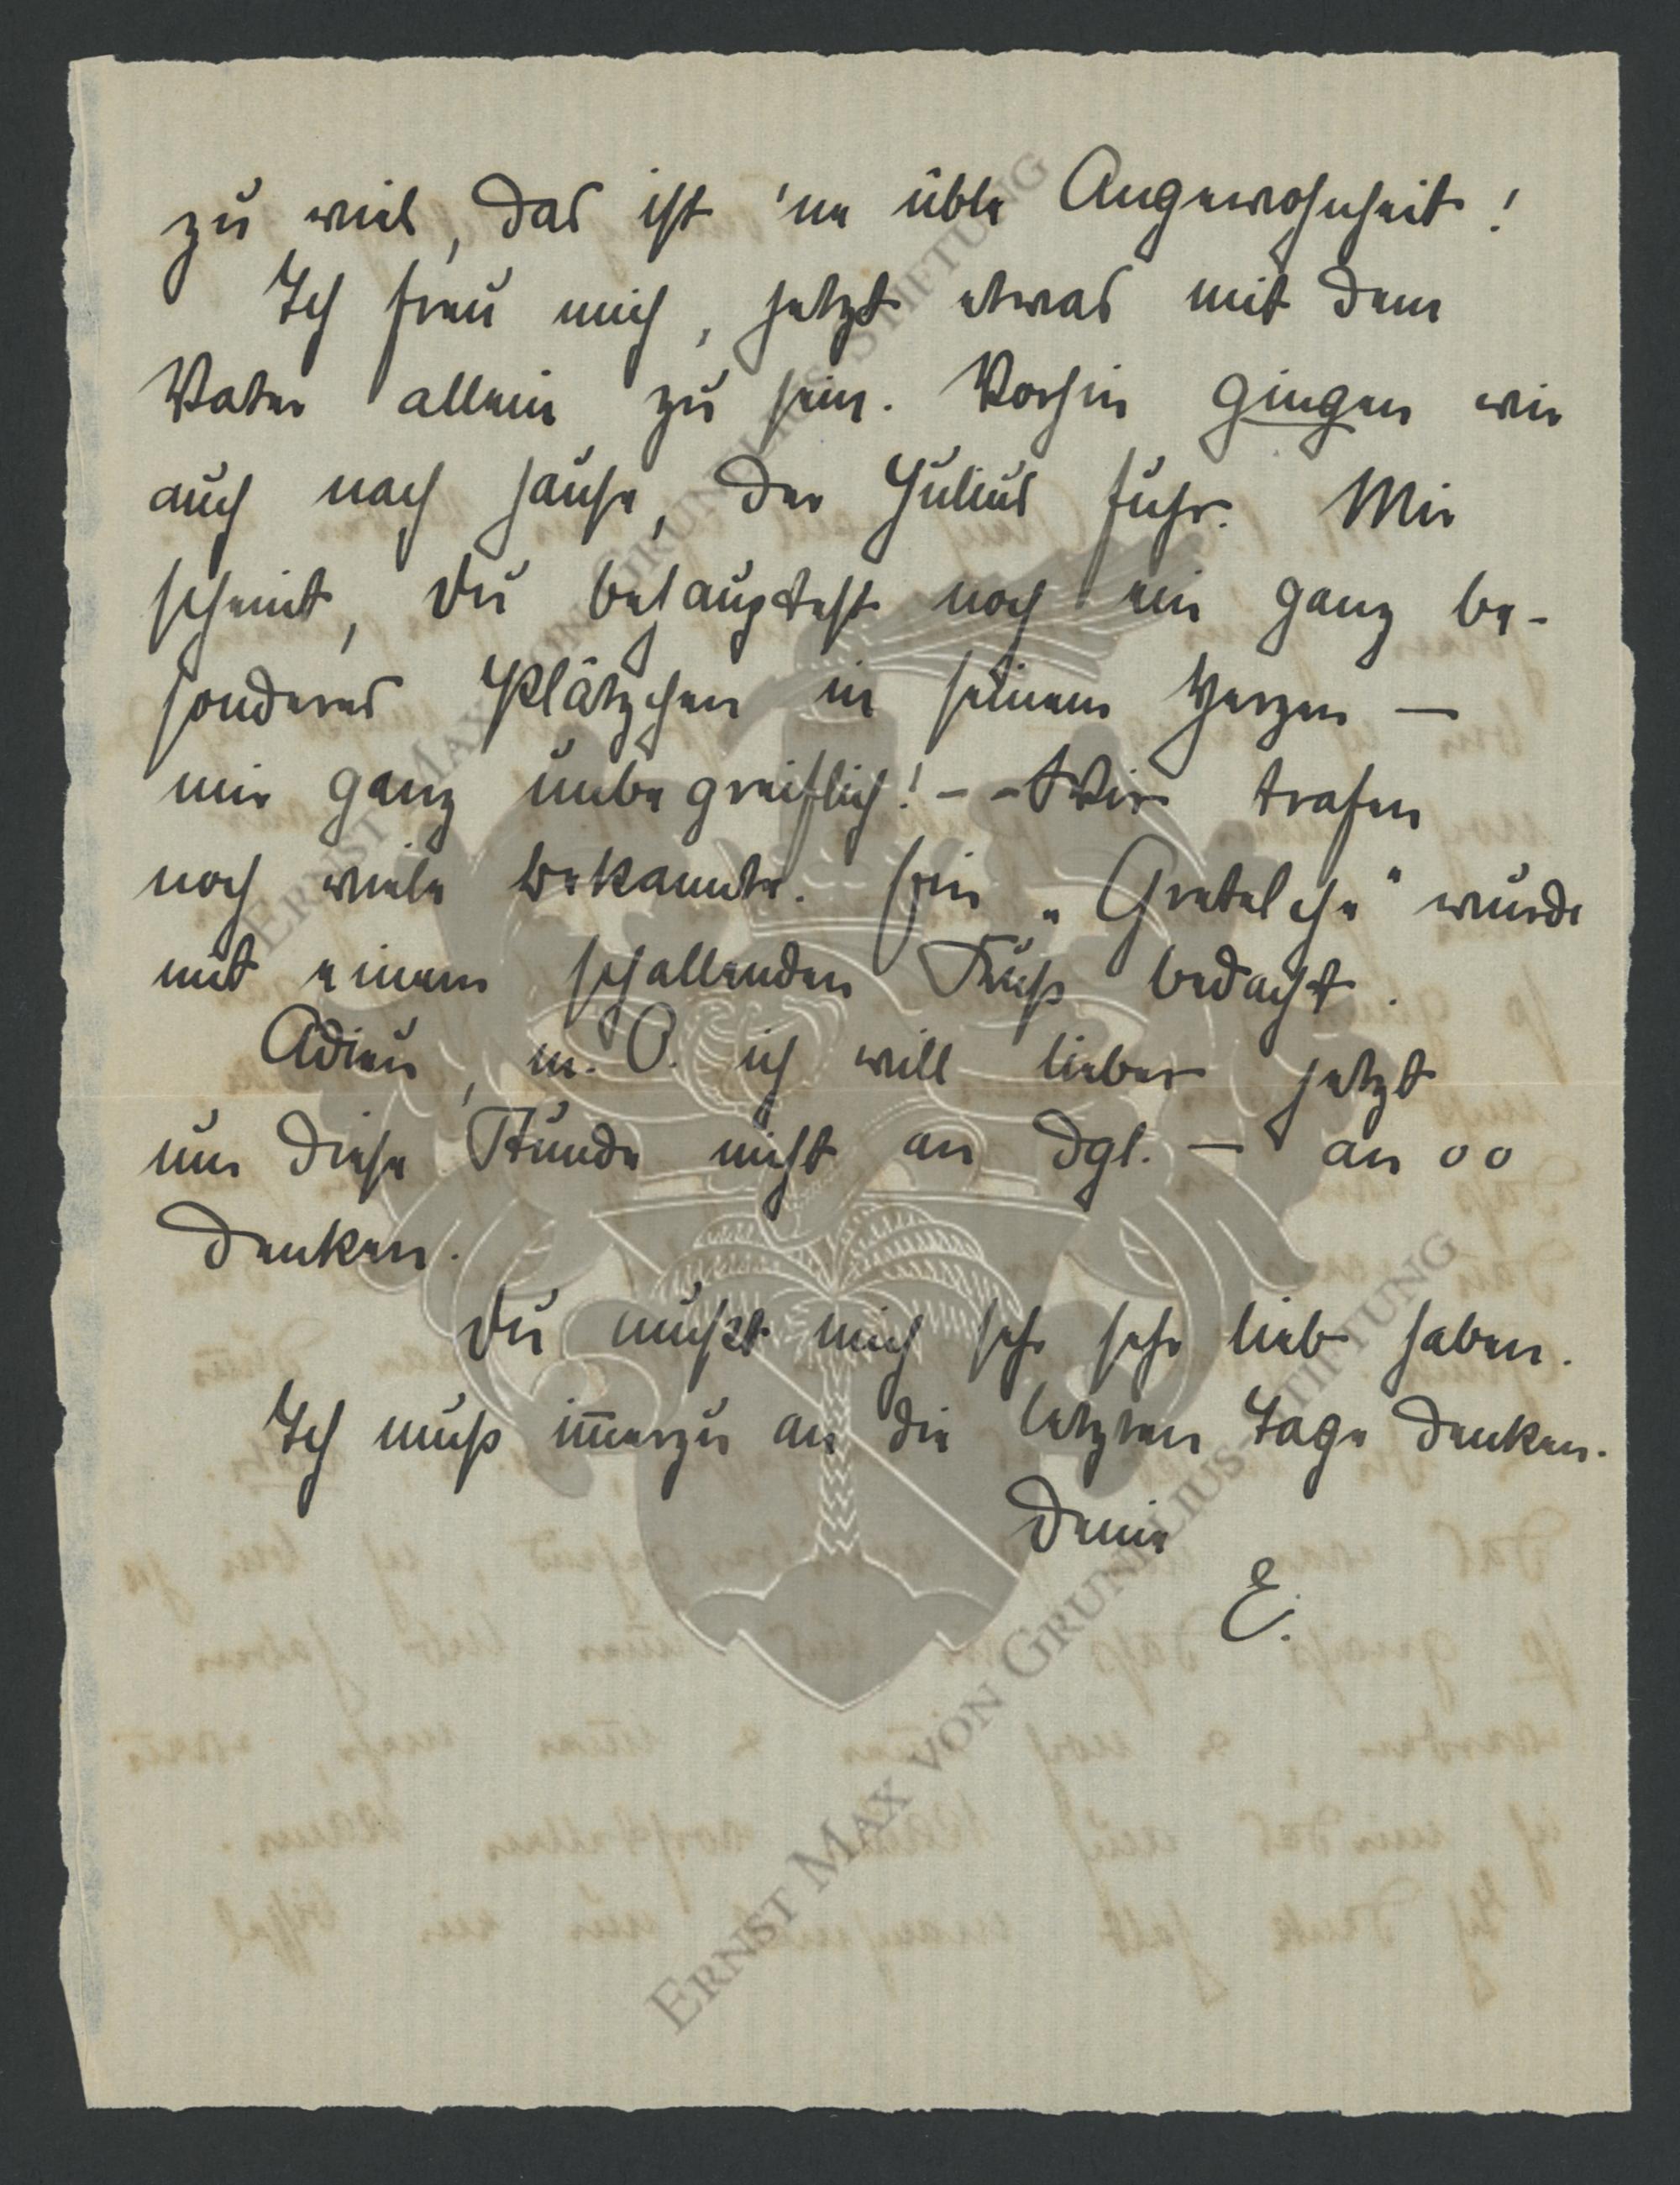 zu viel, das ist 'ne üble Angewohnheit!
Ich freu mich, jetzt etwas mit dem
Vater allein zu sein. Vorhin gingen wir
auch nach hause, der Julius fuhr. Mir
scheint, Du behauptest noch ein ganz be-
sonderes Plätzchen in seinem Herzen —
mir ganz unbegreiflich! - - Wir trafen
noch viele bekannte. Sein „Gretelche" wurde
mit einem schallenden Kuß bedacht.
Adieu, m. O. ich will lieber jetzt
um diese Stunde nicht an dgl. — an oo
denken.
Du mußt mich sehr sehr lieb haben.
Ich muß im̅erzu an die letzten Tage denken.
Deine
E.
ERNST MAX VON GRUNELIUS-STIFTUNG
ERNST MAX VON GRUNELIUS-STIFTUNG